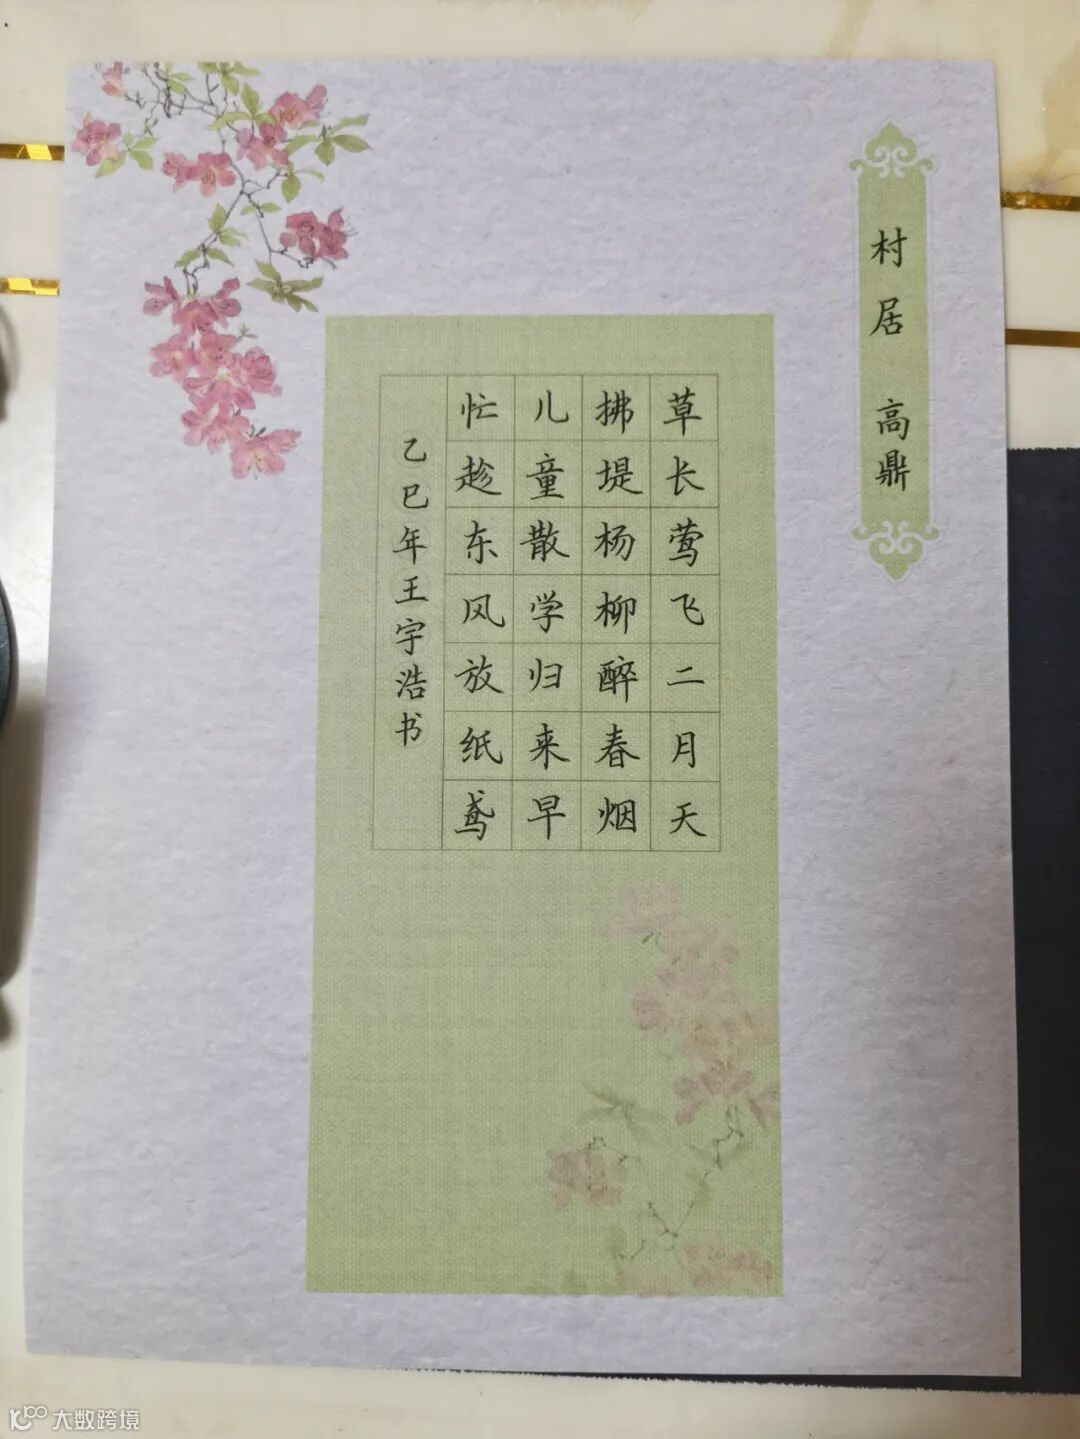 村居 高鼎
草长莺飞二月天
拂堤杨柳醉春烟
儿童散学归来早
忙趁东风放纸鸢
乙巳年王宇浩书
大数跨境